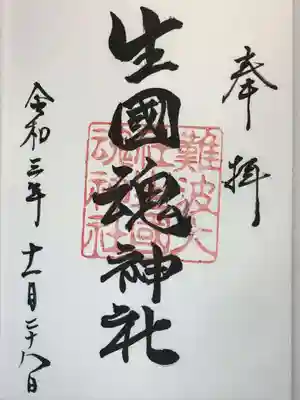 奉拝
生國魂神社
難波大
社生國
魂神社
令和三年十一月二十八日